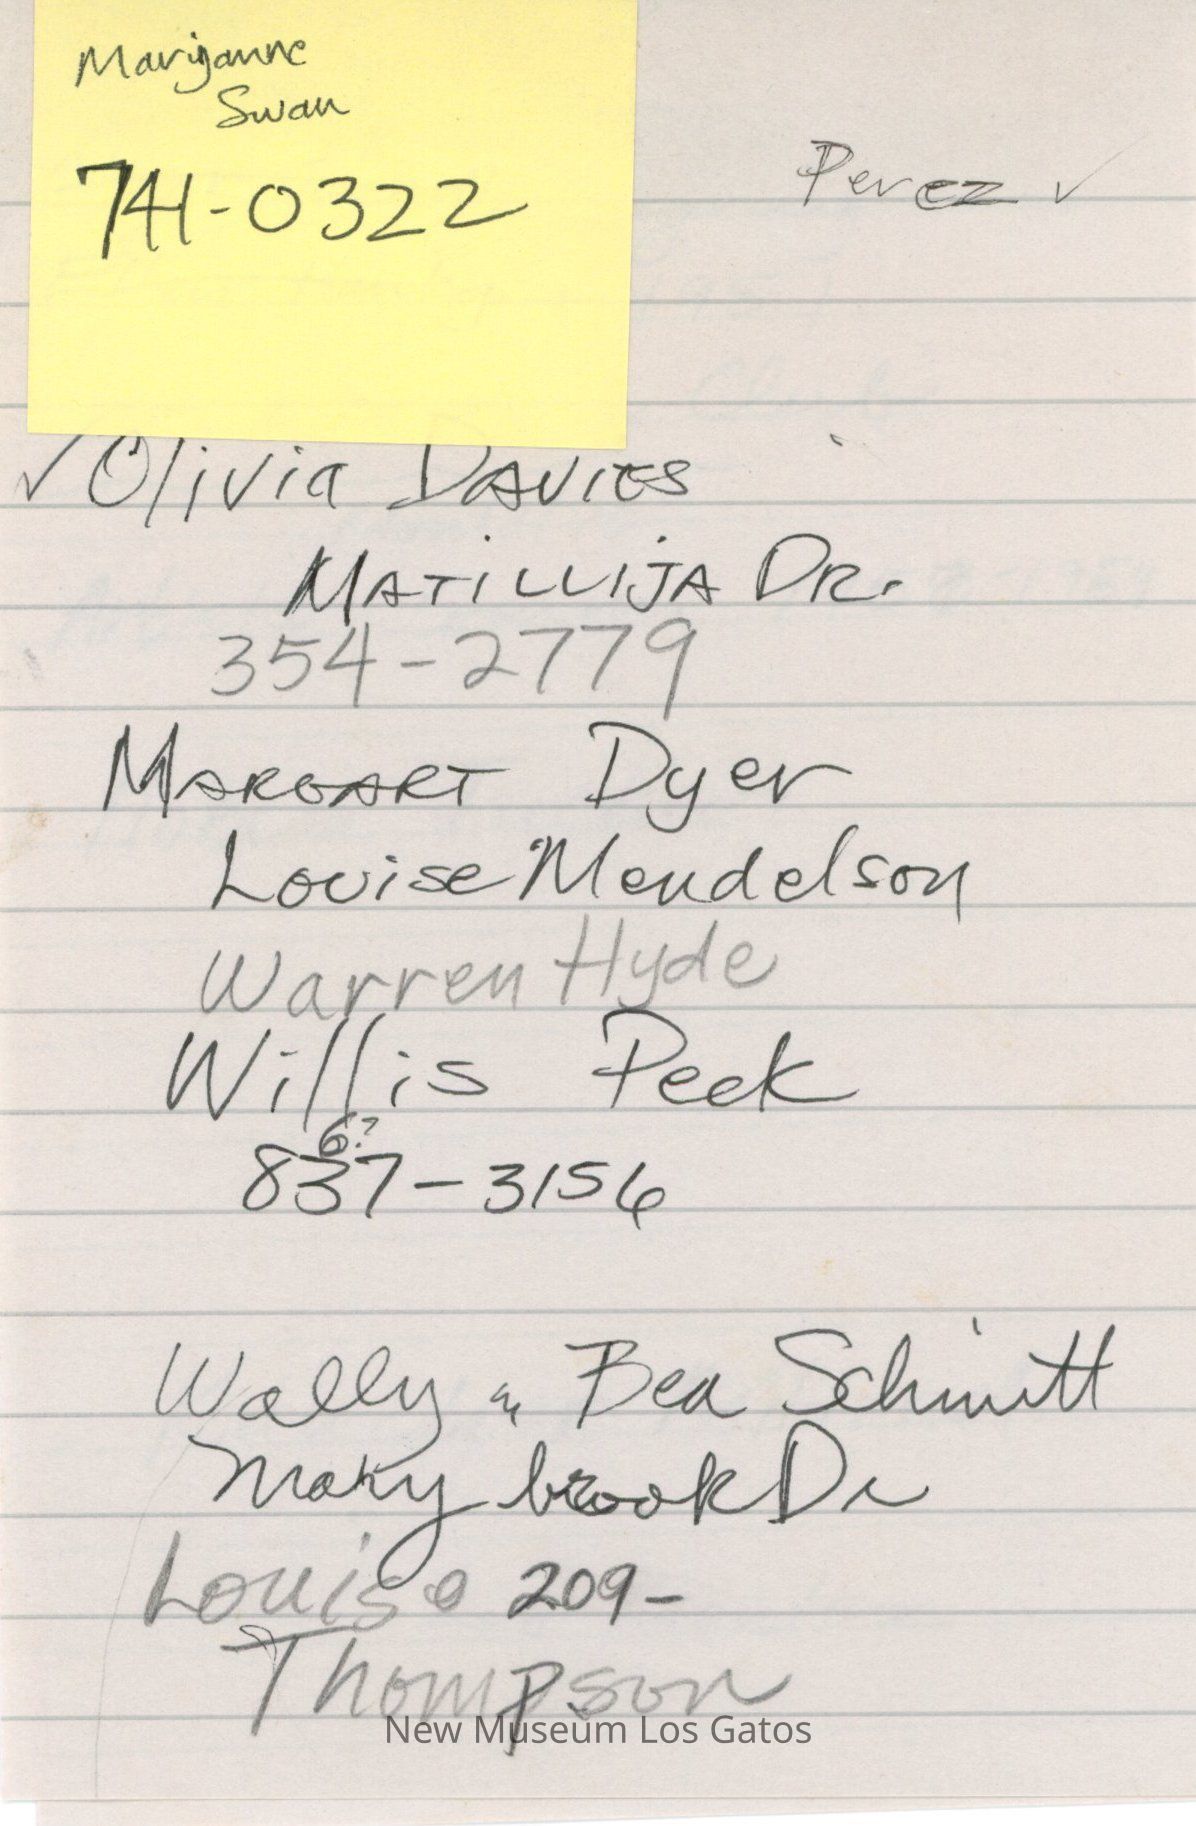 Marijanne
Swan
741-0322
Perez ✓
✓ Olivia DAVIES
MATILLIJA DR.
354-2779
MARGART Dyer
Louise Mendelson
Warren Hyde
Willis Peck
6?
837-3156
Wally & Bea Schmitt
brook Dr
Louise 209-
Thompson
New Museum Los Gatos